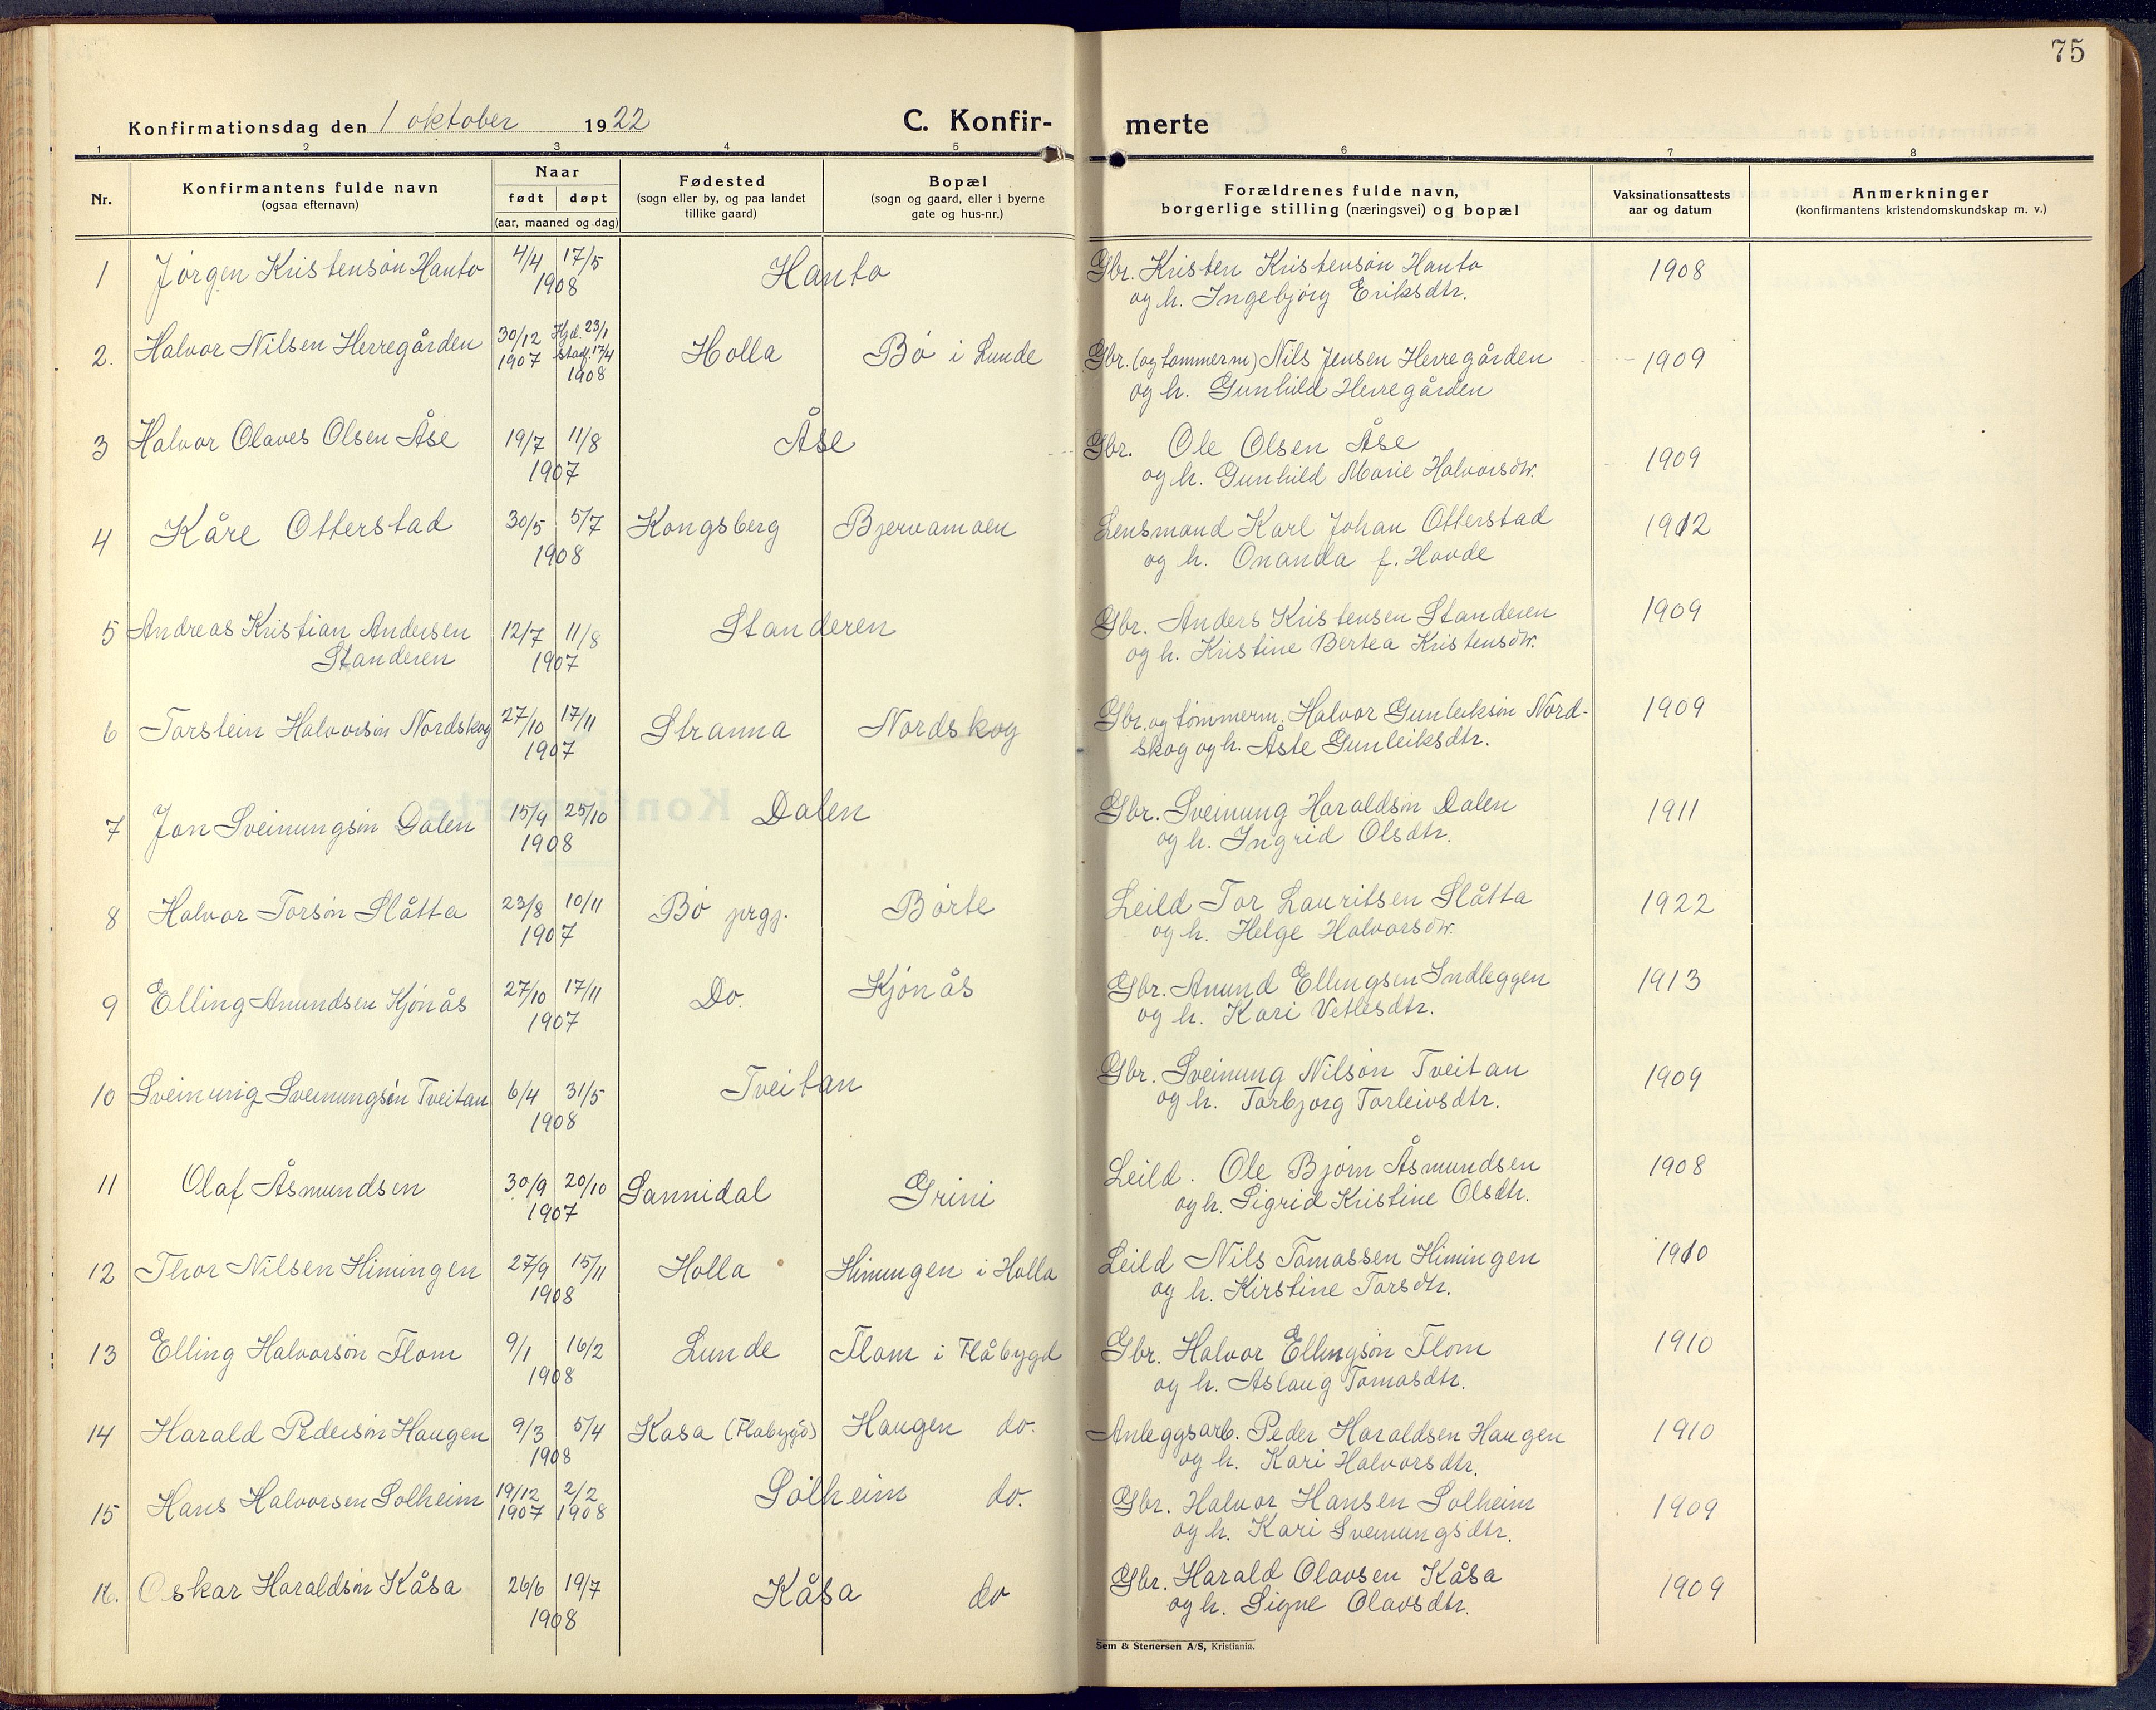 75
Konfirmationsdag den 1 oktober 1922 C. Konfir-merte
1 2 3 4 5 6 7 8
Nr. Konfirmantens fulde navn (ogsaa efternavn) Naar født døpt (aar, maaned og dag) Fødested (sogn eller by, og paa landet tillike gaard) Bopæl (sogn og gaard, eller i byerne gate og hus-nr.) Forældrenes fulde navn, borgerlige stilling (næringsvei) og bopæl Vaksinationsattests aar og datum Anmerkninger (konfirmantens kristendomskundskap m. v.)
1 Jørgen Kristensøn Hanto 4/4 17/5 1908 Hanto Gbr. Kristen Kristensøn Hanto 1908
og h. Ingebjørg Eriksdtr.
2. Halvor Nilsen Herregården 30/12 1907 Hjd. 23/1 stadf. 17/4 1908 Holla Bø i Lunde Gbr. (og tømmerm) Nils Jensen Herregården 1909
og h. Gunhild Herregården
3 Halvor Olaves Olsen Åse 19/7 11/8 1907 Åse Gbr. Ole Olsen Åse 1909
og h. Gunhild Marie Halvorsdtr.
4 Kåre Otterstad 30/5 5/7 1908 Kongsberg Bjervamoen Lensmand Karl Johan Otterstad 1912
og h. Onanda f. Hovde
5 Andreas Kristian Andersen 12/7 11/8 1907 Standeren Gbr. Anders Kristensen Standeren 1909
Standeren og h. Kristine Bertea Kristensdtr.
6 Torstein Halvorsøn Nordskog 27/10 17/11 1907 Stranna Nordskog Gbr. og tømmerm. Halvor Gunleiksøn Nord- 1909
skog og h. Åste Gunleiksdtr.
7 Jon Sveinungsøn Dalen 15/9 25/10 1908 Dalen Gbr. Sveinung Haraldsøn Dalen 1911
og h. Ingrid Olsdtr.
8 Halvor Torsøn Slåtta 23/8 10/11 1907 Bø prgj. Børte Leild Tor Lauritsen Slåtta 1922
og h. Helge Halvorsdtr.
9 Elling Anundsen Kjønås 27/10 17/11 1907 Do. Kjønås Gbr. Anund Ellingsen Indleggen 1913
og h. Kari Vetlesdtr.
10 Sveinung Sveinungsøn Tveitan 6/4 31/5 1908 Tveitan Gbr. Sveinung Nilsøn Tveitan 1909
og h. Torbjørg Torleivsdtr.
11 Olaf Åsmundsen 30/9 20/10 1907 Sannidal Grini Leild. Ole Bjørn Åsmundsen 1908
og h. Sigrid Kristine Olsdtr.
12 Thor Nilsen Himingen 27/9 15/11 1908 Holla Himingen i Holla Leild Nils Tomassen Himingen 1910
og h. Kirstine Torsdtr.
13 Elling Halvorsøn Flom 9/1 16/2 1908 Lunde Flom i Flåbygd Gbr. Halvor Ellingsøn Flom 1910
og h. Aslaug Tomasdtr.
14 Harald Pedersøn Haugen 9/3 5/4 1908 Kåsa (Flabygd) Haugen do. Anleggsarb. Peder Haraldsen Haugen 1910
og h. Kari Halvorsdtr.
15 Hans Halvorsen Solheim 19/12 1907 2/2 1908 Solheim do. Gbr. Halvor Hansen Solheim 1909
og h. Kari Sveinungsdtr.
16. Oskar Haraldsøn Kåsa 26/6 19/7 1908 Kåsa do Gbr. Harald Olavsen Kåsa 1909
og h. Signe Olavsdtr.
Sem & Stenersen A/S, Kristiania.